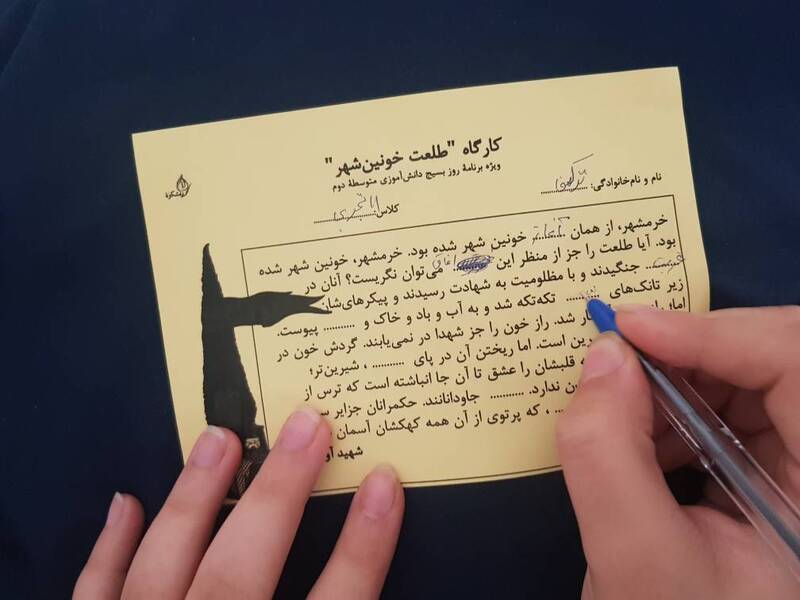 کارگاه "طلعت خونین‌شهر"
ویژه برنامهٔ روز بسیج دانش‌آموزی متوسطهٔ دوم
نام و نام‌خانوادگی:
کلاس: تجربی
خرمشهر، از همان آغاز خونین شهر شده بود. خرمشهر، خونین شهر شده
بود. آیا طلعت را جز از منظر این آفاق می‌توان نگریست؟ آنان در
غربت جنگیدند و با مظلومیت به شهادت رسیدند و پیکرهای‌شان
زیر تانک‌های .......... تکه‌تکه شد و به آب و باد و خاک و .......... پیوست.
اما؛ راز شد. راز خون را جز شهدا در نمی‌یابند. گردش خون در
است. اما ریختن آن در پای .......... ، شیرین‌تر؛
قلبشان را عشق تا آن جا انباشته است که ترس از
ندارد. .......... جاودانانند. حکمرانان جزایر
، که پرتوی از آن همه کهکشان آسمان
شهید